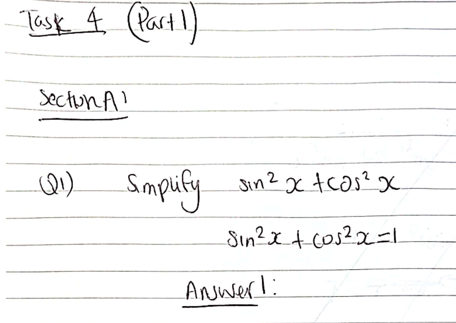 Task 4 (Part 1)
Section A1
Q1) Simplify sin² x + cos² x
sin² x + cos² x = 1
Answer 1: